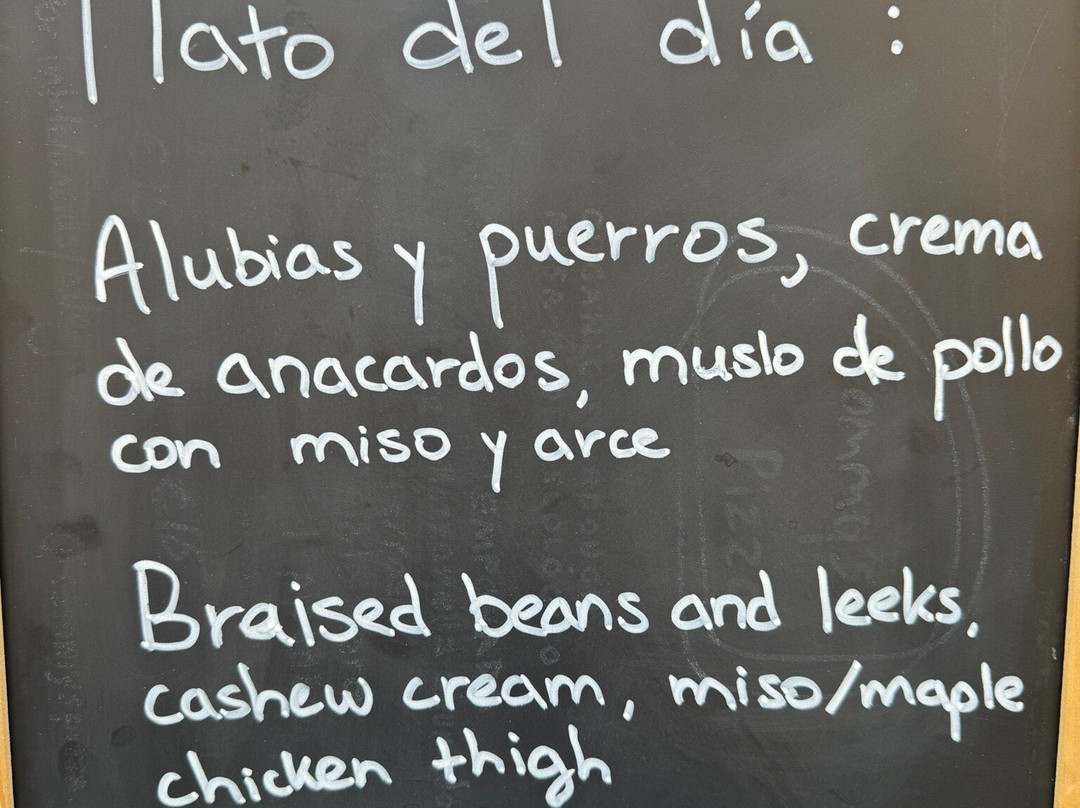 Plato del día :
Alubias y puerros, crema
de anacardos, muslo de pollo
con miso y arce
Braised beans and leeks,
cashew cream, miso/maple
chicken thigh